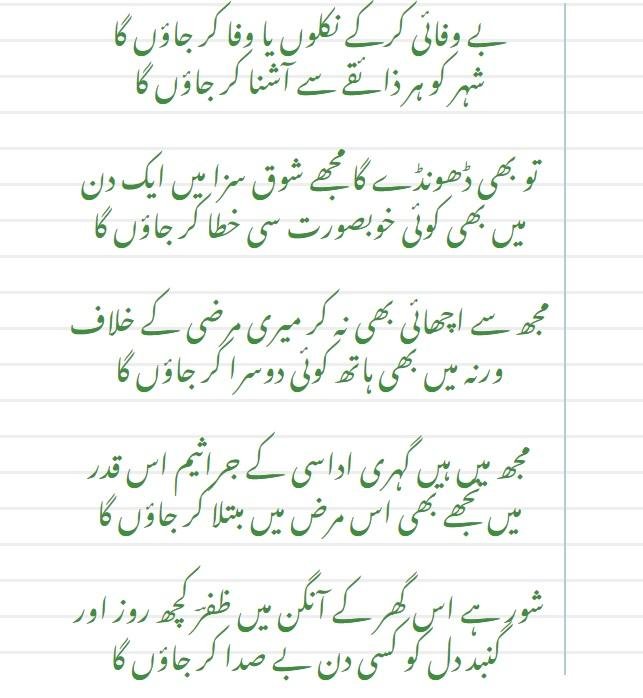 بے وفائی کرکے نکلوں یا وفا کر جاؤں گا
شہر کو ہر ذائقے سے آشنا کر جاؤں گا
تو بھی ڈھونڈے گا مجھے شوق سزا میں ایک دن
میں بھی کوئی خوبصورت سی خطا کر جاؤں گا
مجھ سے اچھائی بھی نہ کر میری مرضی کے خلاف
ورنہ میں بھی ہاتھ کوئی دوسرا کر جاؤں گا
مجھ میں ہیں گہری اداسی کے جراثیم اس قدر
میں تجھے بھی اس مرض میں مبتلا کر جاؤں گا
شور ہے اس گھر کے آنگن میں ظفرؔ کچھ روز اور
گنبد دل کو کسی دن بے صدا کر جاؤں گا